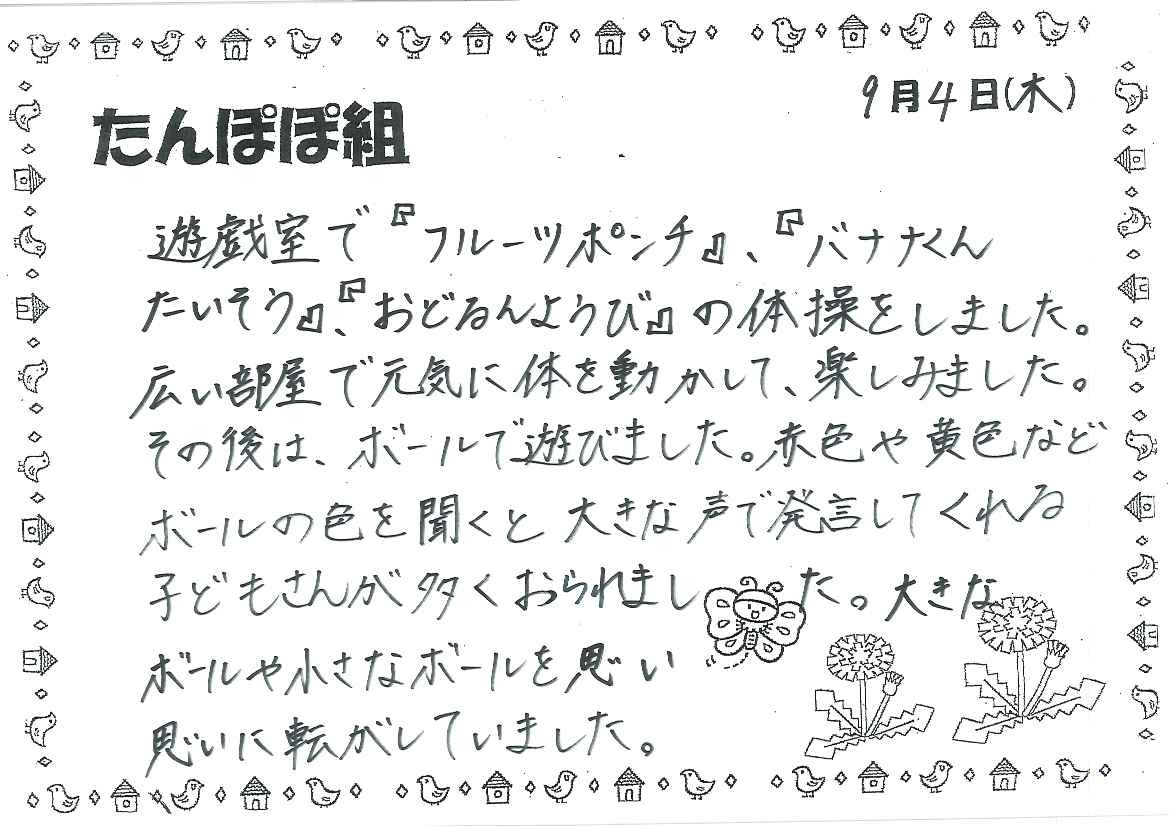 9月4日(木)
たんぽぽ組
遊戯室で『フルーツポンチ』、『バナナくん
たいそう』、『おどるんようび』の体操をしました。
広い部屋で元気に体を動かして、楽しみました。
その後は、ボールで遊びました。赤色や黄色など
ボールの色を聞くと大きな声で発言してくれる
子どもさんが多くおられました。大きな
ボールや小さなボールを思い
思いに転がしていました。